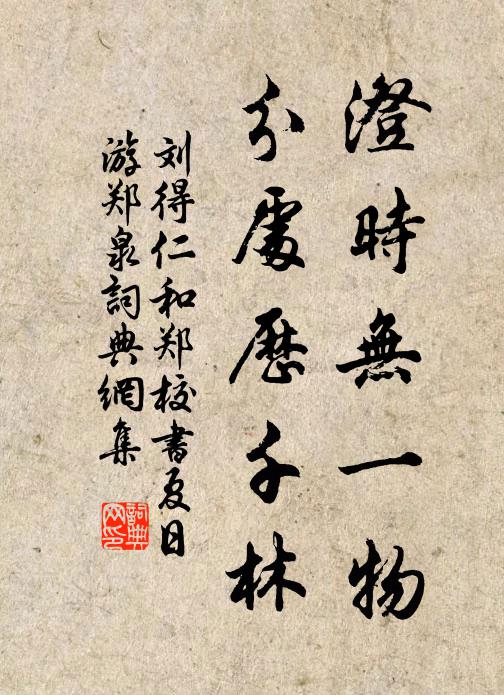 澄時無一物
分處歷千林
刘得仁和郑校書夏日
游郑泉詞典網集
詞典网印